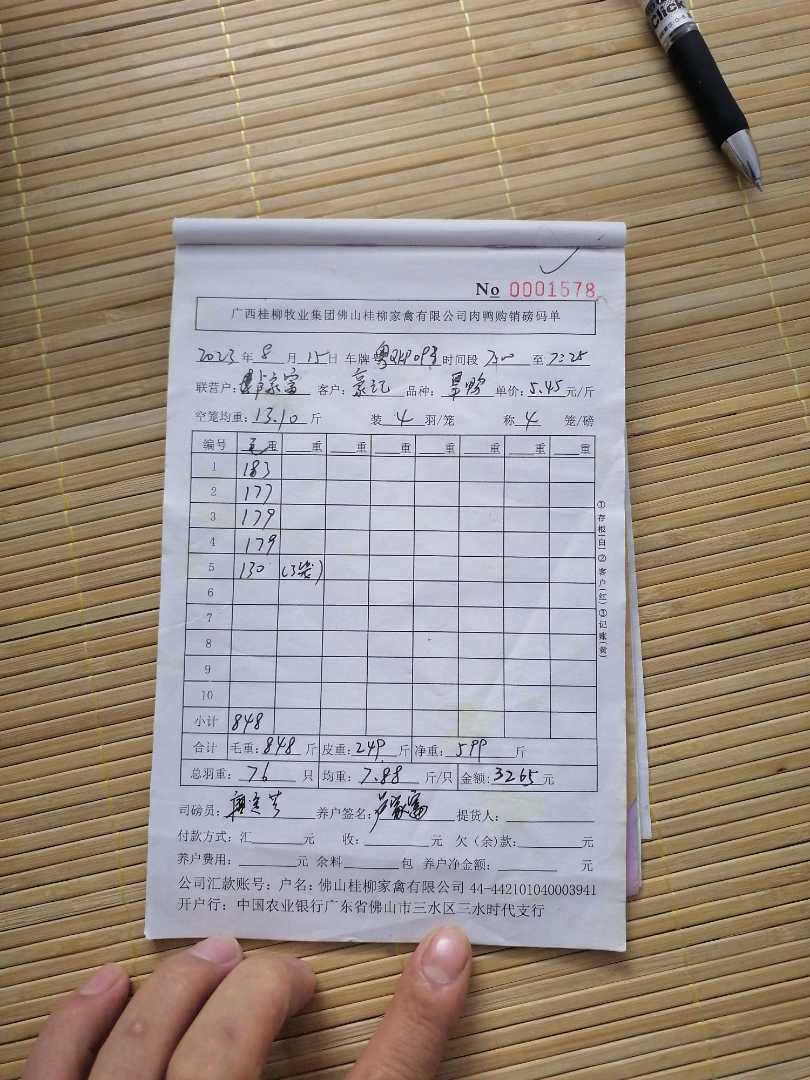 Click
No 0001578
广西桂柳牧业集团佛山桂柳家禽有限公司肉鸭购销磅码单
2023年8月15日 车牌 时间段 7:00 至 7:25
联营户: 客户:豪记 品种: 单价:5.45元/斤
空笼均重:13.10斤 装4羽/笼 称4笼/磅
编号 毛重 重 重 重 重 重 重 重
1 183
2 177
3 179
4 179
5 130 (3笼)
6
7
8
9
10
小计 848
合计 毛重:848斤 皮重:249斤 净重:599斤
总羽重:76只 均重:7.88斤/只 金额:3265元
司磅员: 养户签名: 提货人:
付款方式:汇 元 收: 元 欠(余)款: 元
养户费用: 元 余料 包 养户净金额: 元
公司汇款账号:户名:佛山桂柳家禽有限公司 44-442101040003941
开户行:中国农业银行广东省佛山市三水区三水时代支行
①存根(白)②客户(红)③记账(黄)